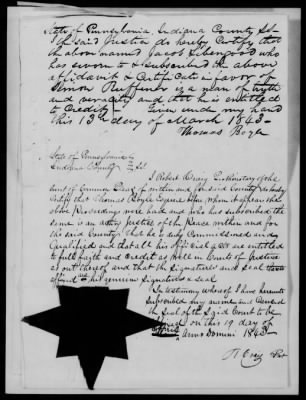 State of Pennsylvania, Indiana County SS
I the said Justice do hereby Certify that
the above named Jacob Libengood who
has sworn to & subscribed the above
affidavit & Certificate in favor of
Simon Ruffner is a man of truth
and veracity and that he is entitled
to Credit Given under my hand
this 13th day of March 1843
Thomas Boyle
State of Pennsylvania
Indiana County SS
I Robert Craig Prothonotary of the
Court of Common Pleas of within and for said County do hereby
Certify that Thomas Boyle Esquire before whom it appears the
above Proceedings were had and who has subscribed the
same is an acting Justice of the Peace within and for
the said County that he is duly Commissioned and
Qualified and that all his official acts are entitled
to full faith and Credit as well in Courts of Justice
as out thereof and that the Signature and Seal there
affixed his genuine Signature & Seal
In testimony whereof I have hereunto
Subscribed my name and Caused
the Seal of the Said Court to be
on this 19 day of
Anno Domini 1843
R Craig Prot